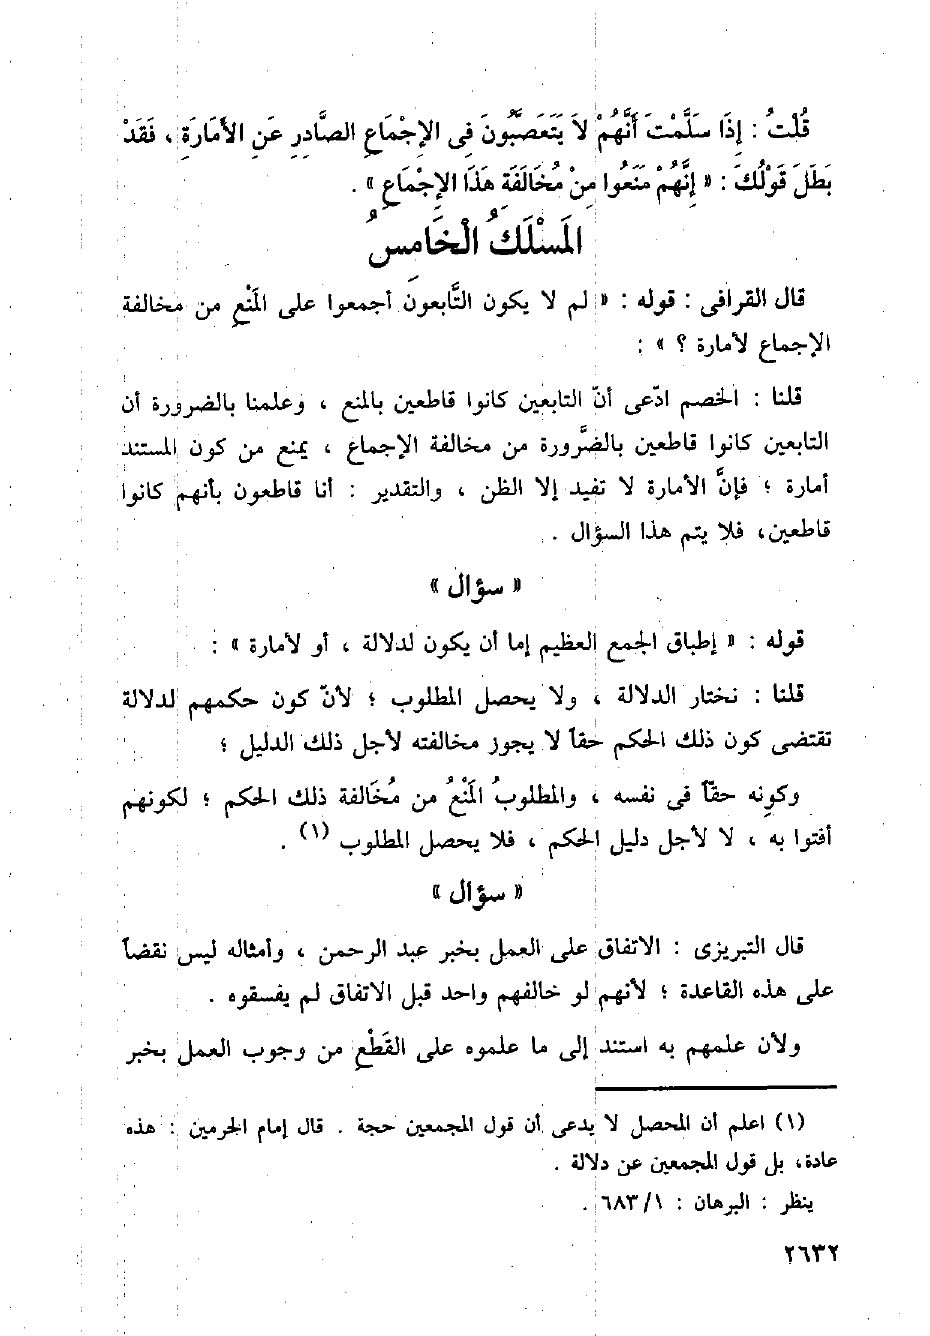 قُلْتُ : إِذَا سَلَّمْتَ أَنَّهُمْ لاَ يَتَعَصَّبُونَ فِى الإِجْمَاعِ الصَّادِرِ عَنِ الأَمَارَةِ ، فَقَدْ
بَطَلَ قَوْلُكَ : « إِنَّهُمْ مَنَعُوا مِنْ مُخَالَفَةِ هَذَا الإِجْمَاعِ » .
المَسْلَكُ الْخَامِسُ
قال القرافى : قوله : « لم لا يكون التَّابعونَ أجمعوا على المَنْعِ من مخالفة
الإجماع لأمارة ؟ » :
قلنا : الخصم ادّعى أنّ التابعين كانوا قاطعين بالمنع ، وعلمنا بالضرورة أن
التابعين كانوا قاطعين بالضَّرورة من مخالفة الإجماع ، يمنع من كون المستند
أمارة ؛ فإنَّ الأمارة لا تفيد إلا الظن ، والتقدير : أنا قاطعون بأنهم كانوا
قاطعين، فلا يتم هذا السؤال .
« سؤال »
قوله : « إطباق الجمع العظيم إما أن يكون لدلالة ، أو لأمارة » :
قلنا : نختار الدلالة ، ولا يحصل المطلوب ؛ لأنّ كون حكمهم لدلالة
تقتضى كون ذلك الحكم حقاً لا يجوز مخالفته لأجل ذلك الدليل ؛
وكونِه حقاً فى نفسه ، والمطلوبُ المَنْعُ من مُخَالفة ذلك الحكم ؛ لكونهم
أفتوا به ، لا لأجل دليل الحكم ، فلا يحصل المطلوب (١) .
« سؤال »
قال التبريزى : الاتفاق على العمل بخبر عبد الرحمن ، وأمثاله ليس نقضاً
على هذه القاعدة ؛ لأنهم لو خالفهم واحد قبل الاتفاق لم يفسقوه .
ولأن علمهم به استند إلى ما علموه على القَطْعِ من وجوب العمل بخبر
(١) اعلم أن المحصل لا يدعى أن قول المجمعين حجة . قال إمام الحرمين : هذه
عادة، بل قول المجمعين عن دلالة .
ينظر : البرهان : ٦٨٣/١ .
٢٦٣٢